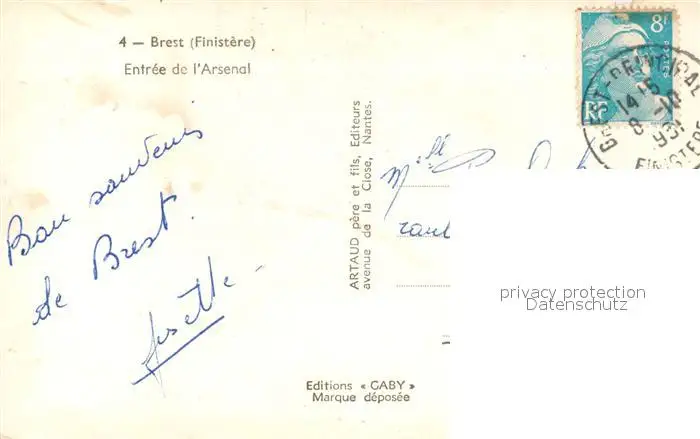 4 — Brest (Finistère)
Entrée de l'Arsenal
Bon souvenir
de Brest.
Josette
ARTAUD père et fils, Editeurs
avenue de la Close, Nantes.
Editions « GABY »
Marque déposée
8F
POSTES
RF
BREST-PRINCIPAL
14-15
8-10
1951
FINISTERE
Melle
privacy protection
Datenschutz